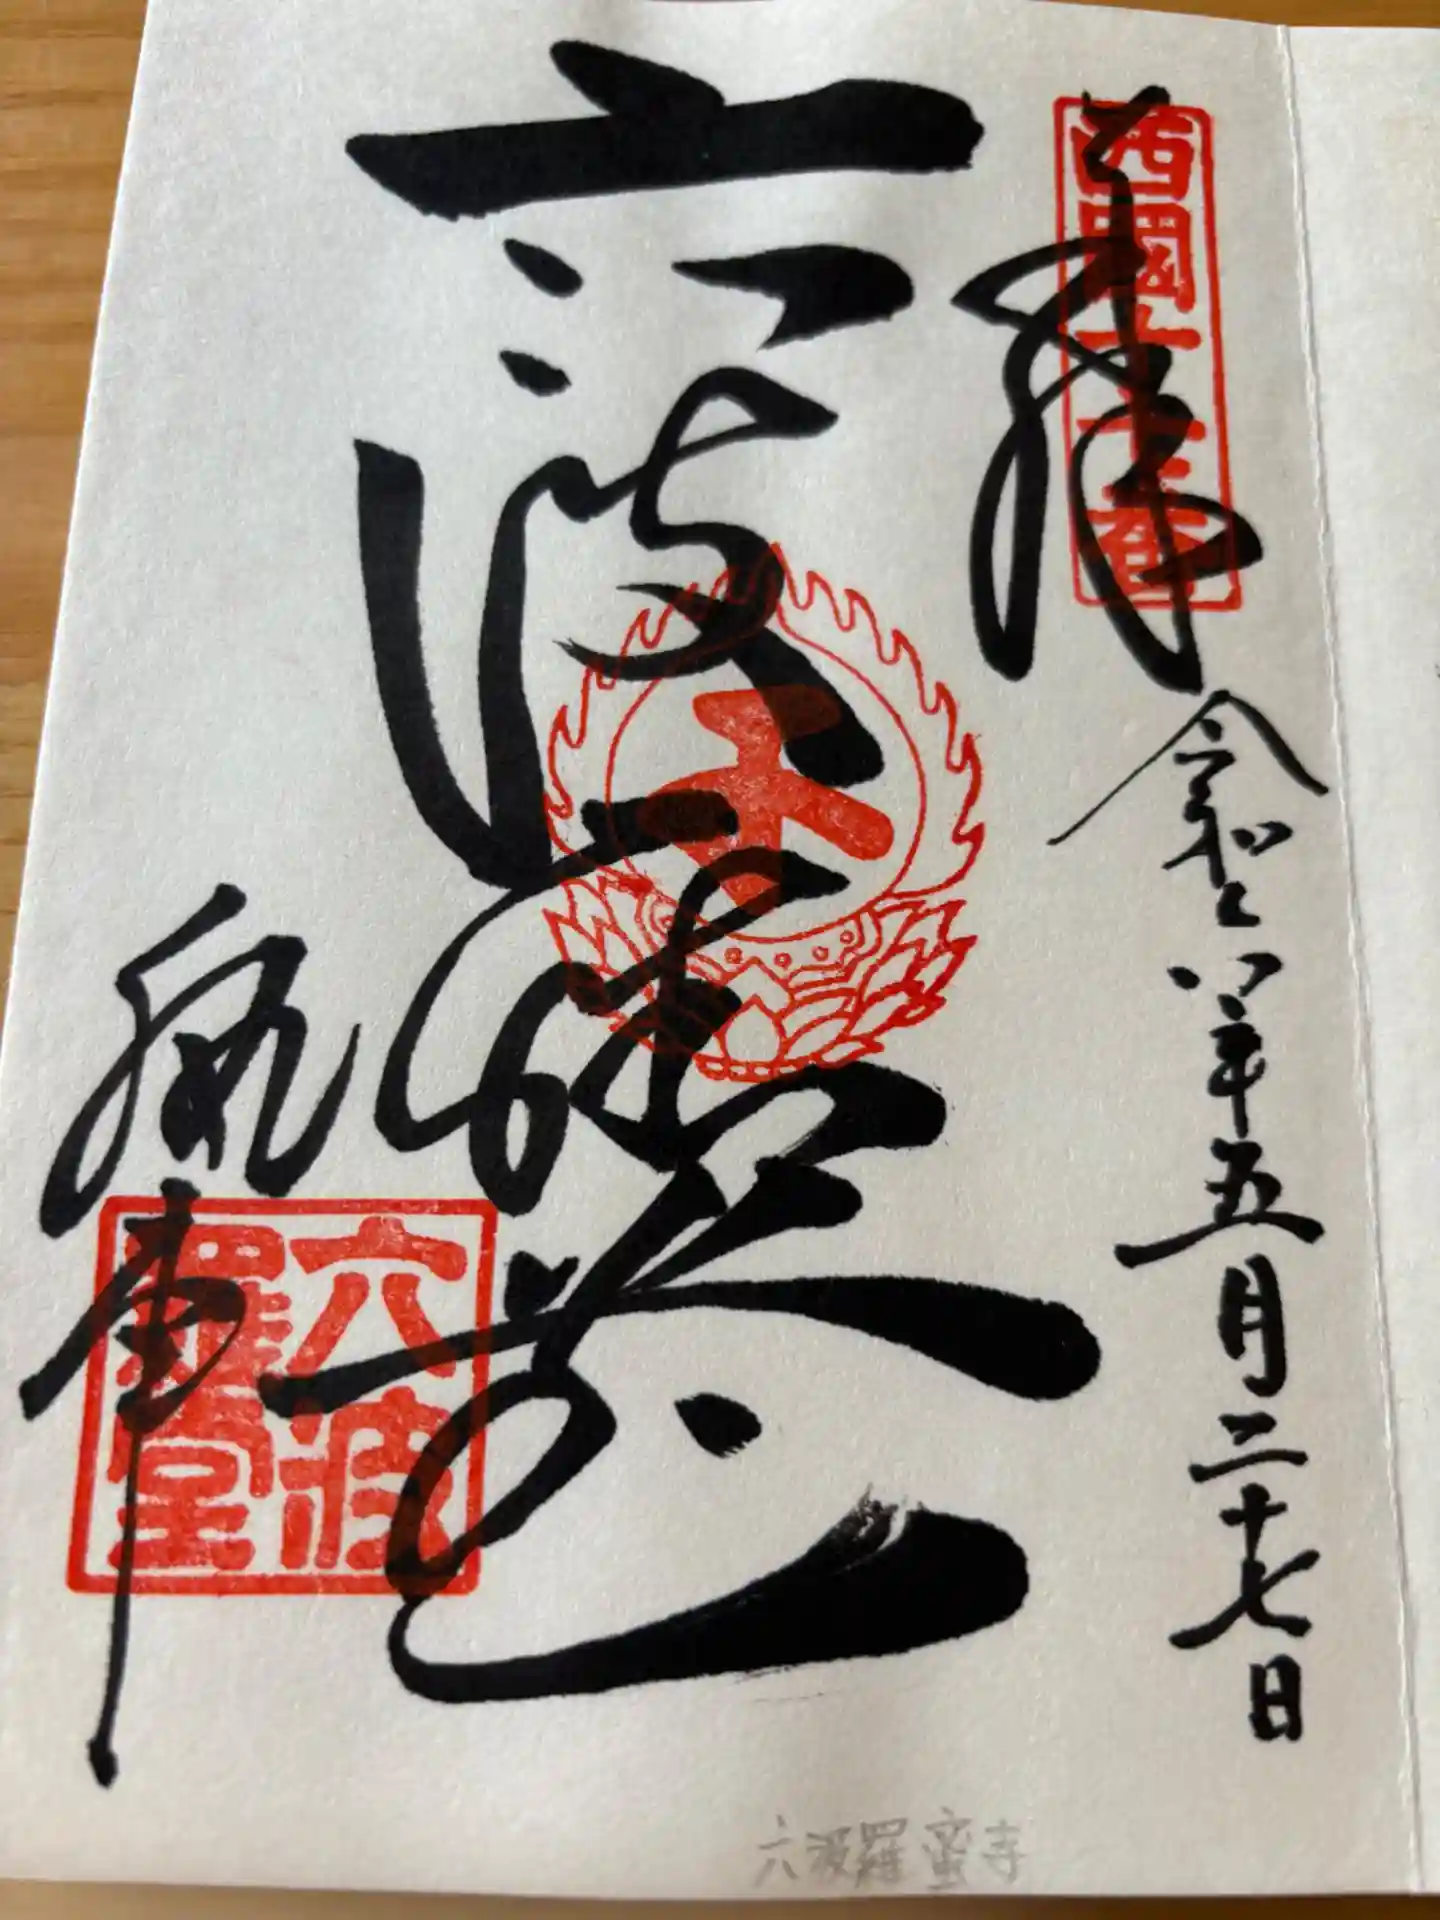 奉拝
西國十七番
令和八年五月二十七日
六波羅堂
六波羅堂
六波羅蜜寺